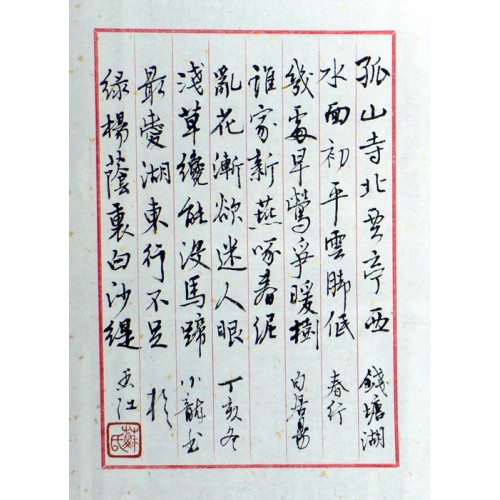 孤山寺北賈亭西 錢塘湖
水面初平雲脚低 春行
幾處早鶯爭暖樹 白居易
誰家新燕啄春泥
亂花漸欲迷人眼 丁亥冬
淺草纔能沒馬蹄 小龍书
最愛湖東行不足 於
綠楊蔭裏白沙堤 吴江
蘇氏